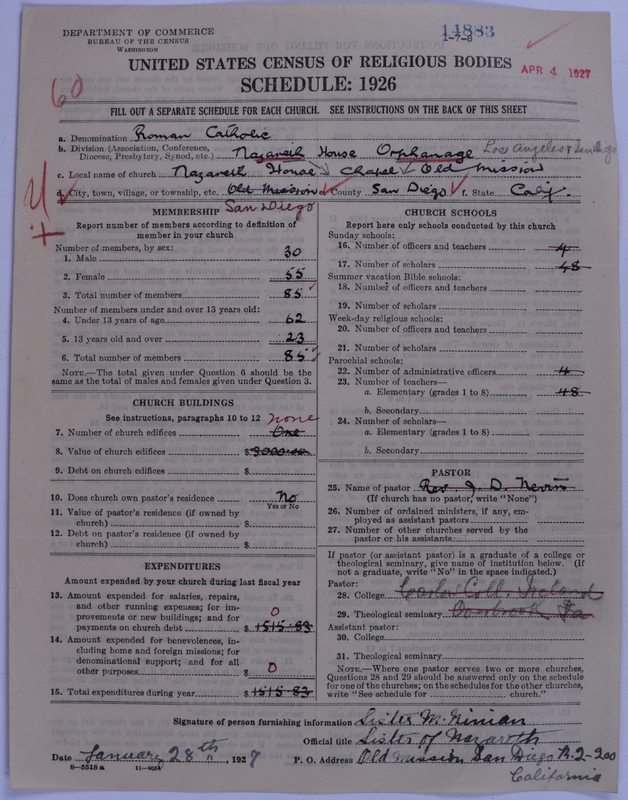 DEPARTMENT OF COMMERCE
BUREAU OF THE CENSUS
WASHINGTON
14883
1-7-8
UNITED STATES CENSUS OF RELIGIOUS BODIES
APR 4 1927
SCHEDULE: 1926
60
FILL OUT A SEPARATE SCHEDULE FOR EACH CHURCH. SEE INSTRUCTIONS ON THE BACK OF THIS SHEET
a. Denomination Roman Catholic
b. Division (Association, Conference, Diocese, Presbytery, Synod, etc.) Nazareth House Orphanage Los Angeles & San Diego
c. Local name of church Nazareth House Chapel Old Mission
d. City, town, village, or township, etc. Old Mission County San Diego f. State Calif.
San Diego
MEMBERSHIP
Report number of members according to definition of member in your church
Number of members, by sex:
1. Male 30
2. Female 55
3. Total number of members 85
Number of members under and over 13 years old:
4. Under 13 years of age 62
5. 13 years old and over 23
6. Total number of members 85
NOTE.—The total given under Question 6 should be the same as the total of males and females given under Question 3.
CHURCH BUILDINGS
See instructions, paragraphs 10 to 12 none
7. Number of church edifices One
8. Value of church edifices $ 3000.00
9. Debt on church edifices $
10. Does church own pastor's residence No
Yes or No
11. Value of pastor's residence (if owned by church) $
12. Debt on pastor's residence (if owned by church) $
EXPENDITURES
Amount expended by your church during last fiscal year
13. Amount expended for salaries, repairs, and other running expenses; for improvements or new buildings; and for payments on church debt $ 1515.83 0
14. Amount expended for benevolences, including home and foreign missions; for denominational support; and for all other purposes $ 0
15. Total expenditures during year $ 1515.83
CHURCH SCHOOLS
Report here only schools conducted by this church
Sunday schools:
16. Number of officers and teachers 4
17. Number of scholars 48
Summer vacation Bible schools:
18. Number of officers and teachers
19. Number of scholars
Week-day religious schools:
20. Number of officers and teachers
21. Number of scholars
Parochial schools:
22. Number of administrative officers 4
23. Number of teachers—
a. Elementary (grades 1 to 8) 48
b. Secondary
24. Number of scholars—
a. Elementary (grades 1 to 8)
b. Secondary
PASTOR
25. Name of pastor Rev. J. D. Nevin
(If church has no pastor, write "None")
26. Number of ordained ministers, if any, employed as assistant pastors
27. Number of other churches served by the pastor or his assistants
If pastor (or assistant pastor) is a graduate of a college or theological seminary, give name of institution below. (If not a graduate, write "No" in the space indicated.)
Pastor:
28. College Carlow Coll. Ireland
29. Theological seminary Overbrook Pa
Assistant pastor:
30. College
31. Theological seminary
NOTE.—Where one pastor serves two or more churches, Questions 28 and 29 should be answered only on the schedule for one of the churches; on the schedules for the other churches, write "See schedule for church."
Signature of person furnishing information Sister M. Ninian
Official title Sister of Nazareth
Date January 28th, 1927 P. O. Address Old Mission San Diego R. 2-200
California
8-5518a 11-9054